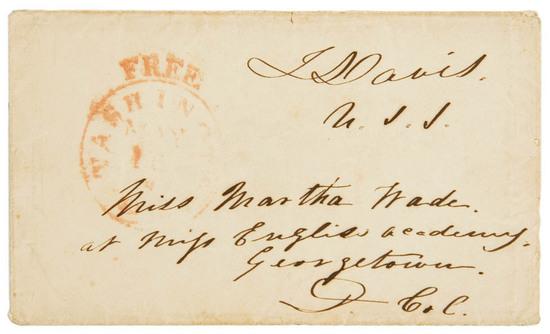 FREE
J Davis.
U. S. S.
WASHING
MAY
Miss Martha Wade.
at Miss English academy.
Georgetown.
D Col.